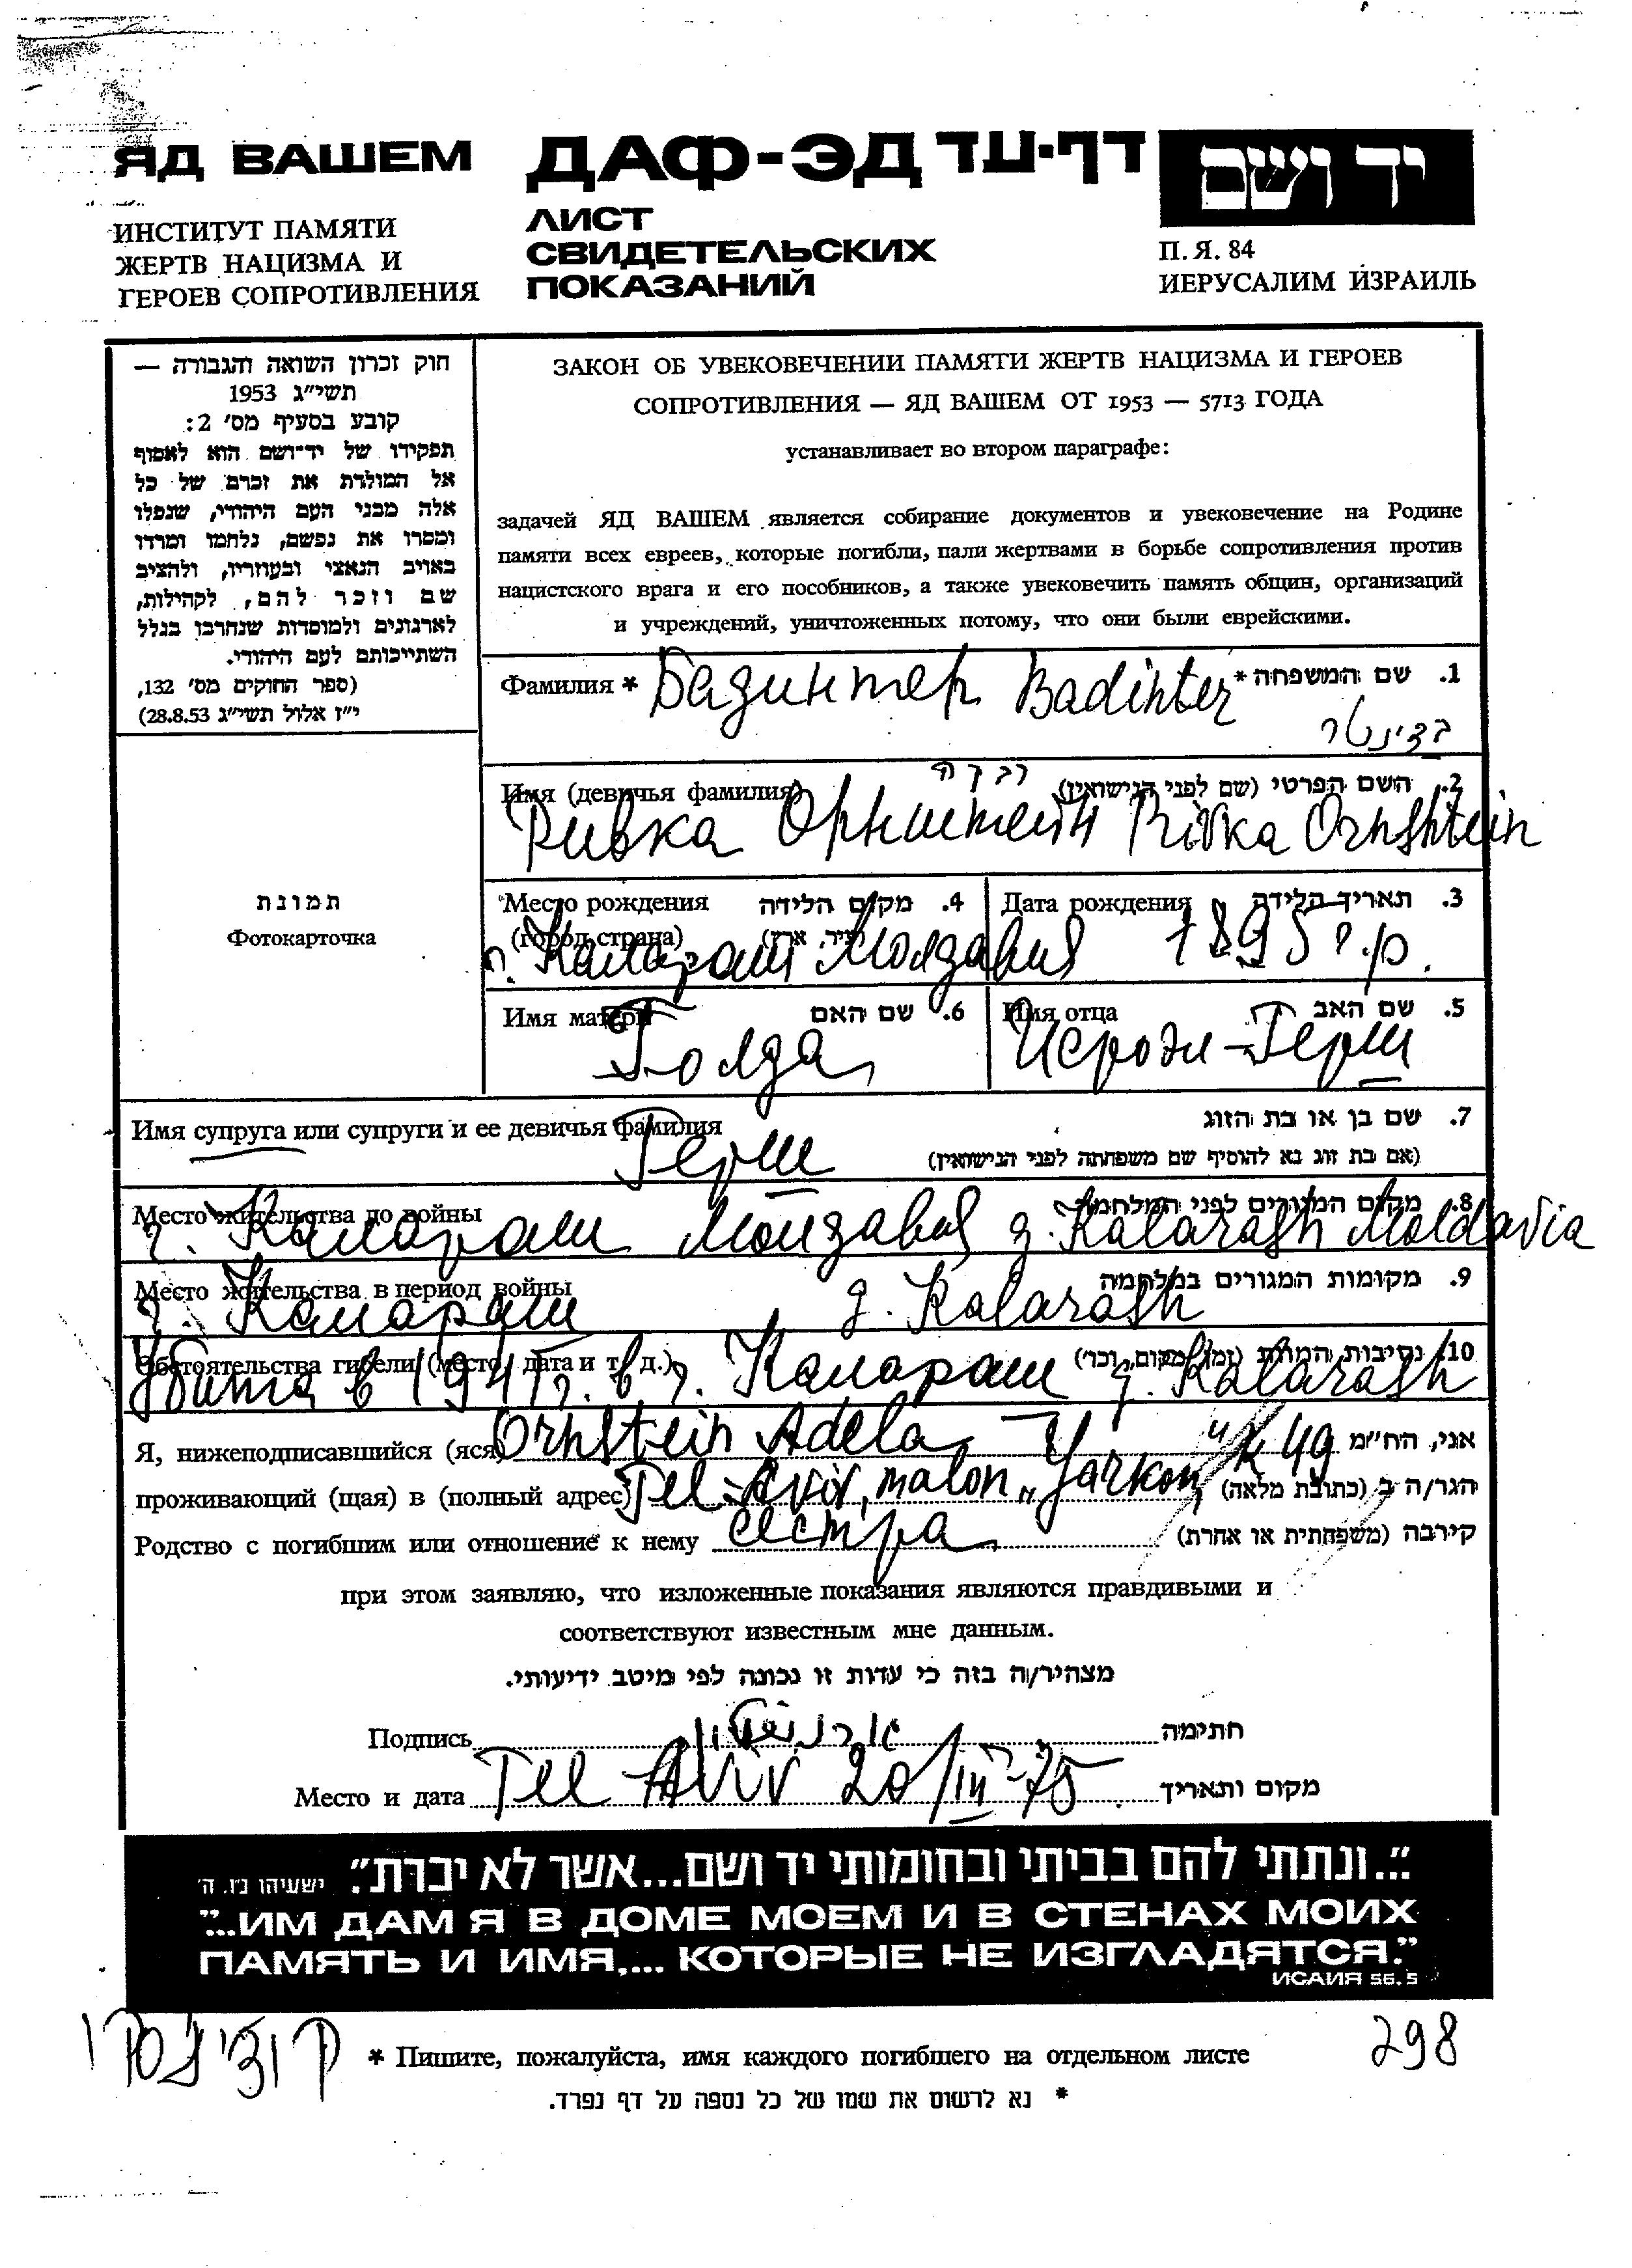 ЯД ВАШЕМ
ИНСТИТУТ ПАМЯТИ
ЖЕРТВ НАЦИЗМА И
ГЕРОЕВ СОПРОТИВЛЕНИЯ
ДАФ-ЭД דף-עד
ЛИСТ
СВИДЕТЕЛЬСКИХ
ПОКАЗАНИЙ
יד ושם
П. Я. 84
ИЕРУСАЛИМ ИЗРАИЛЬ
חוק זכרון השואה והגבורה —
תשי״ג 1953
קובע בסעיף מס׳ 2:
תפקידו של יד־ושם הוא לאסוף
אל המולדת את זכרם של כל
אלה מבני העם היהודי, שנפלו
ומסרו את נפשם, נלחמו ומרדו
באויב הנאצי ובעוזריו, ולהציב
שם וזכר להם, לקהילות,
לארגונים ולמוסדות שנחרבו בגלל
השתייכותם לעם היהודי.
(ספר החוקים מס׳ 132,
י״ז אלול תשי״ג 28.8.53)
ЗАКОН ОБ УВЕКОВЕЧЕНИИ ПАМЯТИ ЖЕРТВ НАЦИЗМА И ГЕРОЕВ
СОПРОТИВЛЕНИЯ — ЯД ВАШЕМ ОТ 1953 — 5713 ГОДА
устанавливает во втором параграфе:
задачей ЯД ВАШЕМ является собирание документов и увековечение на Родине
памяти всех евреев, которые погибли, пали жертвами в борьбе сопротивления против
нацистского врага и его пособников, а также увековечить память общин, организаций
и учреждений, уничтоженных потому, что они были еврейскими.
Фамилия * Бадинтер Badinter 1. שם המשפחה *
בדינטר
Имя (девичья фамилия) רבקה 2. השם הפרטי (שם לפני הנישואין)
Ривка Орнштейн Rivka Ornshtein
Место рождения 4. מקום הלידה
(город, страна) (עיר, ארץ)
г. Калараш Молдавия
Дата рождения 3. תאריך הלידה
1895 г.р.
Имя матери 6. שם האם
Голда
Имя отца 5. שם האב
Исроэл-Герш
תמונת
Фотокарточка
Имя супруга или супруги и ее девичья фамилия 7. שם בן או בת הזוג
Герш (אם בת זוג נא להוסיף שם משפחתה לפני הנישואין)
Место жительства до войны 8. מקום המגורים לפני המלחמה
г. Калараш Молдавия g. Kalarash Moldavia
Место жительства в период войны 9. מקומות המגורים במלחמה
г. Калараш g. Kalarash
Обстоятельства гибели (место, дата и т. д.) 10. נסיבות המוות (זמן, מקום, וכו׳)
Убита в 1941 г. в г. Калараш g. Kalarash
Я, нижеподписавшийся (яся) Ornstein Adela אני, הח״מ
проживающий (щая) в (полный адрес) Tel-Aviv, malon "Yarkon" k 49 הגר/ה ב (כתובת מלאה)
Родство с погибшим или отношение к нему сестра קירבה (משפחתית או אחרת)
при этом заявляю, что изложенные показания являются правдивыми и
соответствуют известным мне данным.
מצהיר/ה בזה כי עדות זו נכונה לפי מיטב ידיעותי.
Подпись חתימה
Место и дата Tel Aviv 20/III-75 מקום ותאריך
"...ונתתי להם בביתי ובחומותי יד ושם...אשר לא יכרת". ישעיהו נ״ו. ה׳
"...ИМ ДАМ Я В ДОМЕ МОЕМ И В СТЕНАХ МОИХ
ПАМЯТЬ И ИМЯ,... КОТОРЫЕ НЕ ИЗГЛАДЯТСЯ."
ИСАИЯ 56. 5
* Пишите, пожалуйста, имя каждого погибшего на отдельном листе
298
* נא לרשום את שמו של כל נספה על דף נפרד.